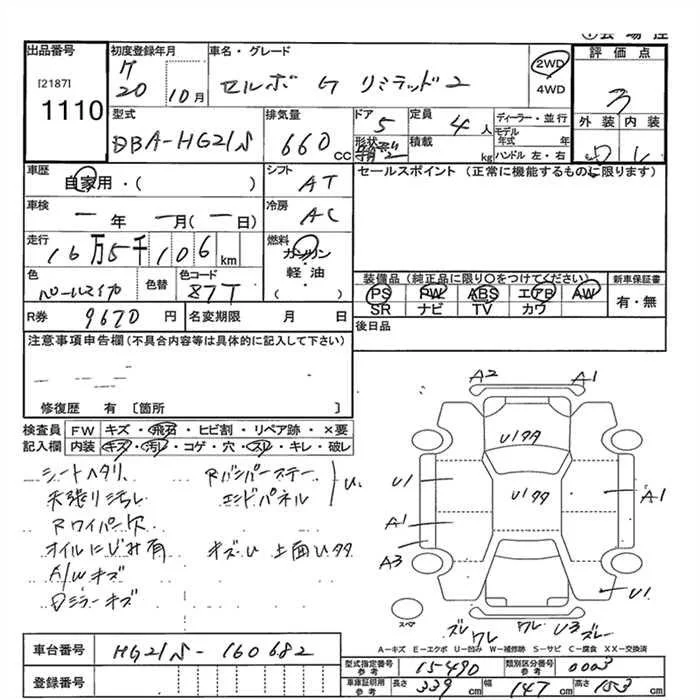 出品番号
[2187]
1110
初度登録年月
20 10月
車名・グレード
セルボ G リミテッド2
2WD
4WD
評価点
外装 内装
型式
DBA-HG21S
排気量
660 CC
ドア
5
形状
定員
4人
積載
kg
ディーラー・並行
モデル年式 年
ハンドル 左・右
車歴
自家用・( )
シフト
AT
セールスポイント (正常に機能するものに限ります)
車検
年 月( 日)
冷房
AC
走行
16万5千106km
燃料
ガソリン
軽油
( )
色
パールマイカ
色替
色コード
87T
装備品 (純正品に限り○をつけてください)
PS PW ABS エアB AW
SR ナビ TV カワ
新車保証書
有・無
R券 9670円
名変期限 月 日
後日品
注意事項申告欄(不具合内容等は具体的に記入して下さい)
修復歴 有 [箇所 ]
検査員記入欄
FW キズ・飛石・ヒビ割・リペア跡・×要
内装 キズ・汚レ・コゲ・穴・スレ・キレ・破レ
シートヘタリ Rバンパーステー
天張り汚レ エンドパネル U.
Rワイパー欠
オイルにじみ有 キズU 上面Uタタ
A/Wキズ
Dミラーキズ
A2 A1
Uタタ
U1 Uタタ A1
A1
A3
U1
スペア
ズレ ワレ ワレ U3 ズレ
A-キズ E-エクボ U-凹み W-補修跡 S-サビ C-腐食 XX-交換済
車台番号 HG21S-160682
登録番号
型式指定番号 参考 15490
類別区分番号 参考 0003
車庫証明用 参考 長さ 339cm 幅 147cm 高さ 153cm